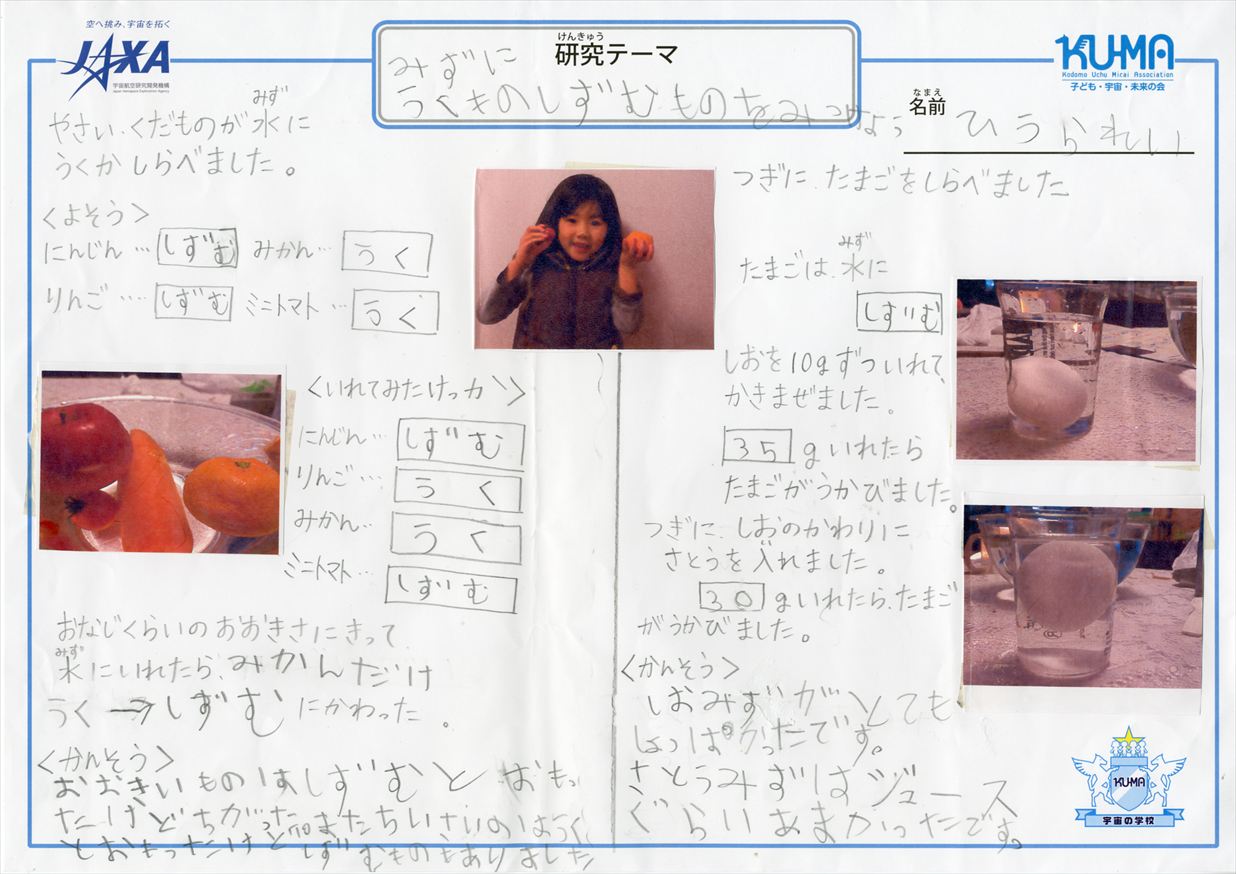 空へ挑み、宇宙を拓く
JAXA
宇宙航空研究開発機構
Japan Aerospace Exploration Agency
けんきゅう
研究テーマ
みずに
うくものしずむものをみつけよう
KU-MA
Kodomo Uchu Mirai Association
子ども・宇宙・未来の会
なまえ
名前
ひうられい
みず
やさい、くだものが水に
うくかしらべました。
<よそう>
にんじん… しずむ みかん… うく
りんご…. しずむ ミニトマト… うく
<いれてみたけっか>
にんじん… しずむ
りんご… うく
みかん… うく
ミニトマト… しずむ
おなじくらいのおおきさにきって
みず
水にいれたら、みかんだけ
うく→しずむにかわった。
<かんそう>
おおきいものはしずむとおもっ
たけどちがった。またちいさいのはうく
とおもったけどしずむものもありました
つぎに、たまごをしらべました
みず
たまごは、水に
しずむ
しおを10gずついれて、
かきまぜました。
35gいれたら
たまごがうかびました。
つぎに、しおのかわりに
さとうを入れました。
30gいれたら、たまご
がうかびました。
<かんそう>
しおみずがとても
しょっぱかったです。
さとうみずはジュース
ぐらいあまかったです。
KU-MA
宇宙の学校